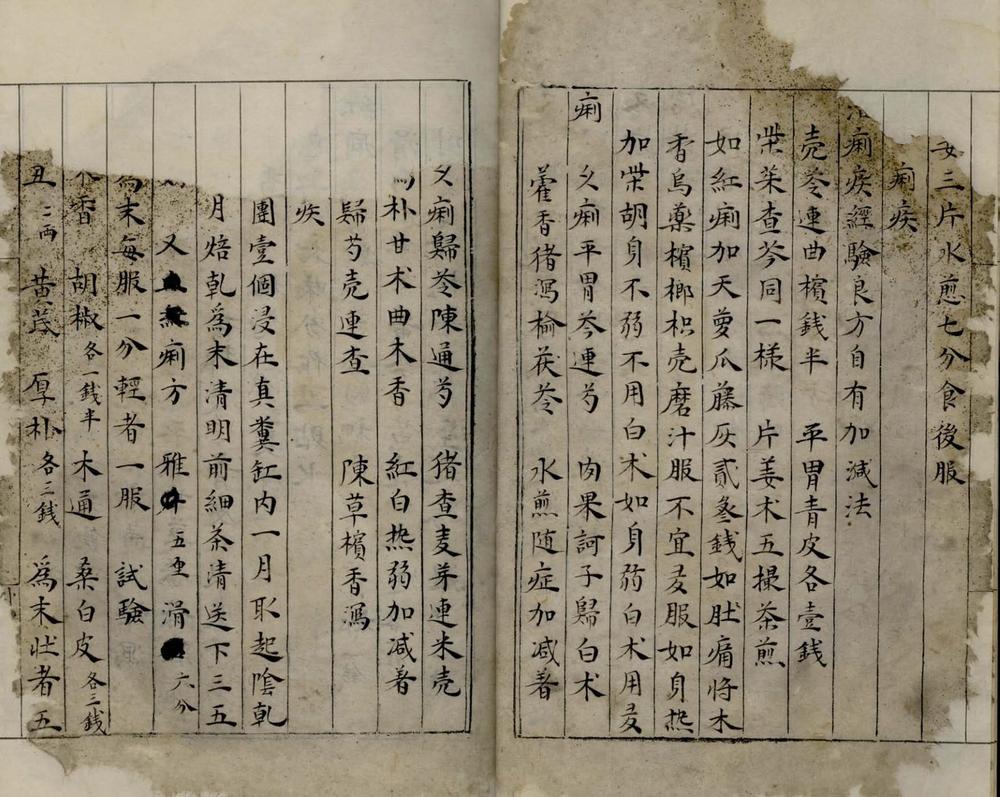 三片水煎七分食後服
痢疾
痢疾經驗良方自有加減法
壳苓連曲檳錢半 平胃青皮各壹錢
柴茱查芩同一樣 片姜术五撮茶煎
如紅痢加天蘿瓜藤灰貳叄錢如肚痛將木
香烏藥檳榔枳壳磨汁服不宜㕛服如身热
加柴胡身不弱不用白术如身弱白术用㕛
痢 㕛痢平胃芩連芍 肉果訶子歸白术
藿香猪瀉榆茯苓 水煎随症加减著
㕛痢歸苓陳通芍 猪查麦芽連米壳
朴甘术曲木香 紅白热弱加减著
歸芍壳連查 陳草檳香瀉
疾
團壹個浸在真糞缸内一月取起陰乾
月焙乾為末清明前細茶清送下三五
又 痢方 雅 五 滑 六分
末每服一分輕者一服 試驗
香 胡椒各一錢半 木通 桑白皮各三錢
丑二両 黄芪 厚朴各三錢 為末壯者五